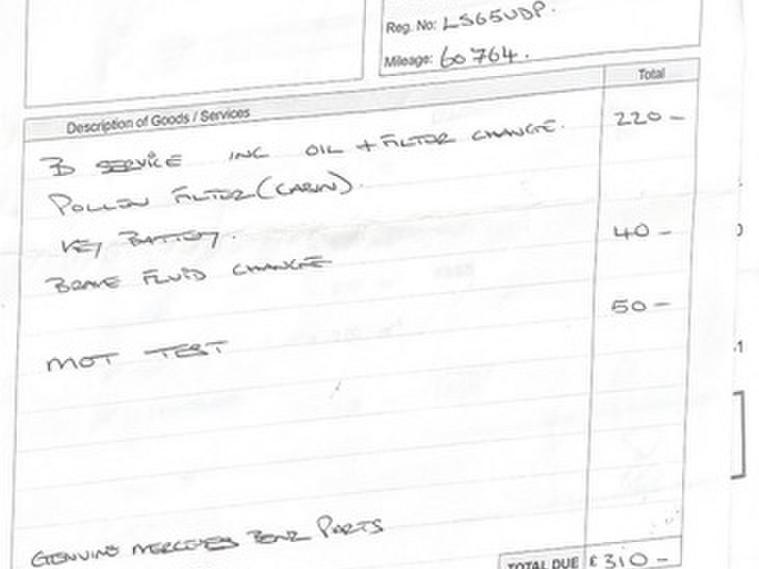 Reg. No: LS65UDP.
Mileage: 60764.
Description of Goods / Services Total
B SERVICE INC OIL + FILTER CHANGE. 220 -
POLLEN FILTER (CABIN).
KEY BATTERY.
BRAKE FLUID CHANGE 40 -
MOT TEST 50 -
GENUINE MERCEDES BENZ PARTS
TOTAL DUE £310 -